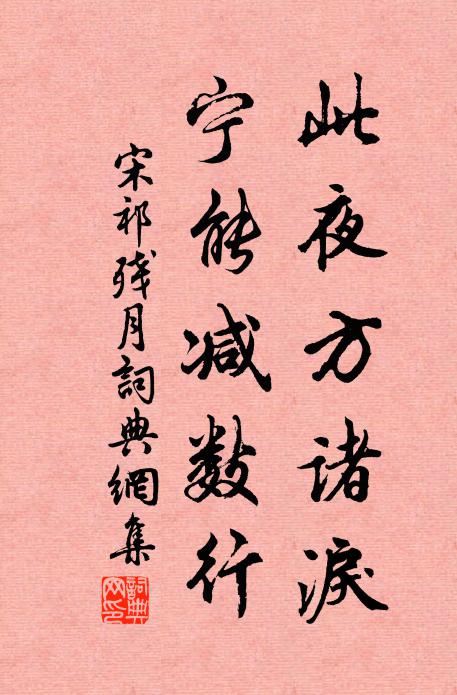 此夜方诸淚
宁能减数行
宋祁残月詞典網集
詞典網印